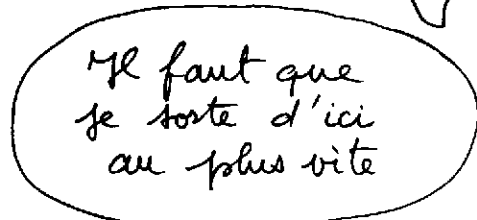 Il faut que
je sorte d'ici
au plus vite